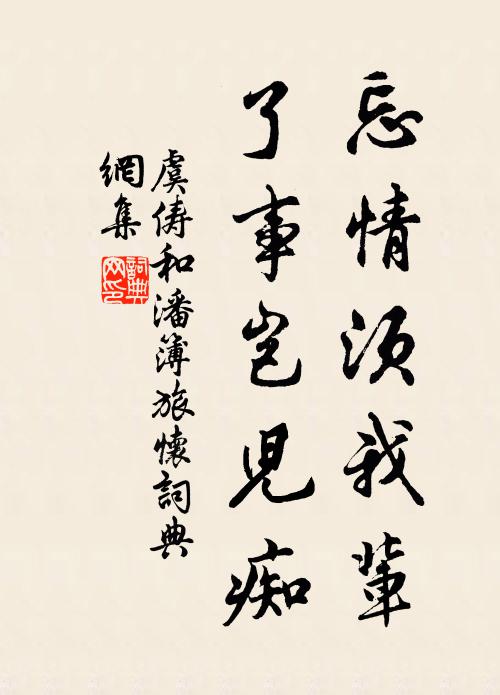 忘情須我輩
了事豈兒痴
虞儔和潘簿旅懷詞典
網集
詞典
网印